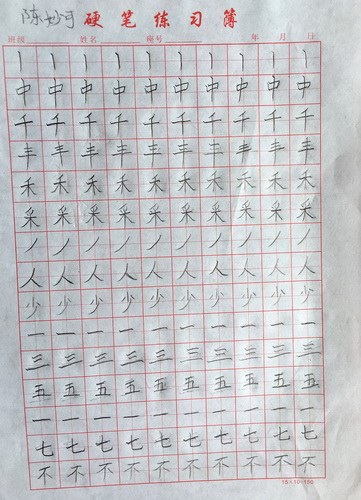 陈妙可 硬笔练习簿
班级 姓名 座号 年 月 日
丨丨丨丨丨丨丨丨丨丨
中中中中中中中中中中
千千千千千千千千千千
丰丰丰丰丰丰丰丰丰丰
禾禾禾禾禾禾禾禾禾禾
采采采采采采采采采采
丿丿丿丿丿丿丿丿丿丿
人人人人人人人人人人
少少少少少少少少少少
一一一一一一一一一一
三三三三三三三三三三
五五五五五五五五五五
一一一一一一一一一一
七七七七七七七七七七
不不不不不不不不不不
15×10=150